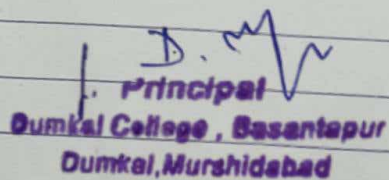 D.
Principal
Dumkal College, Basantapur
Dumkal, Murshidabad